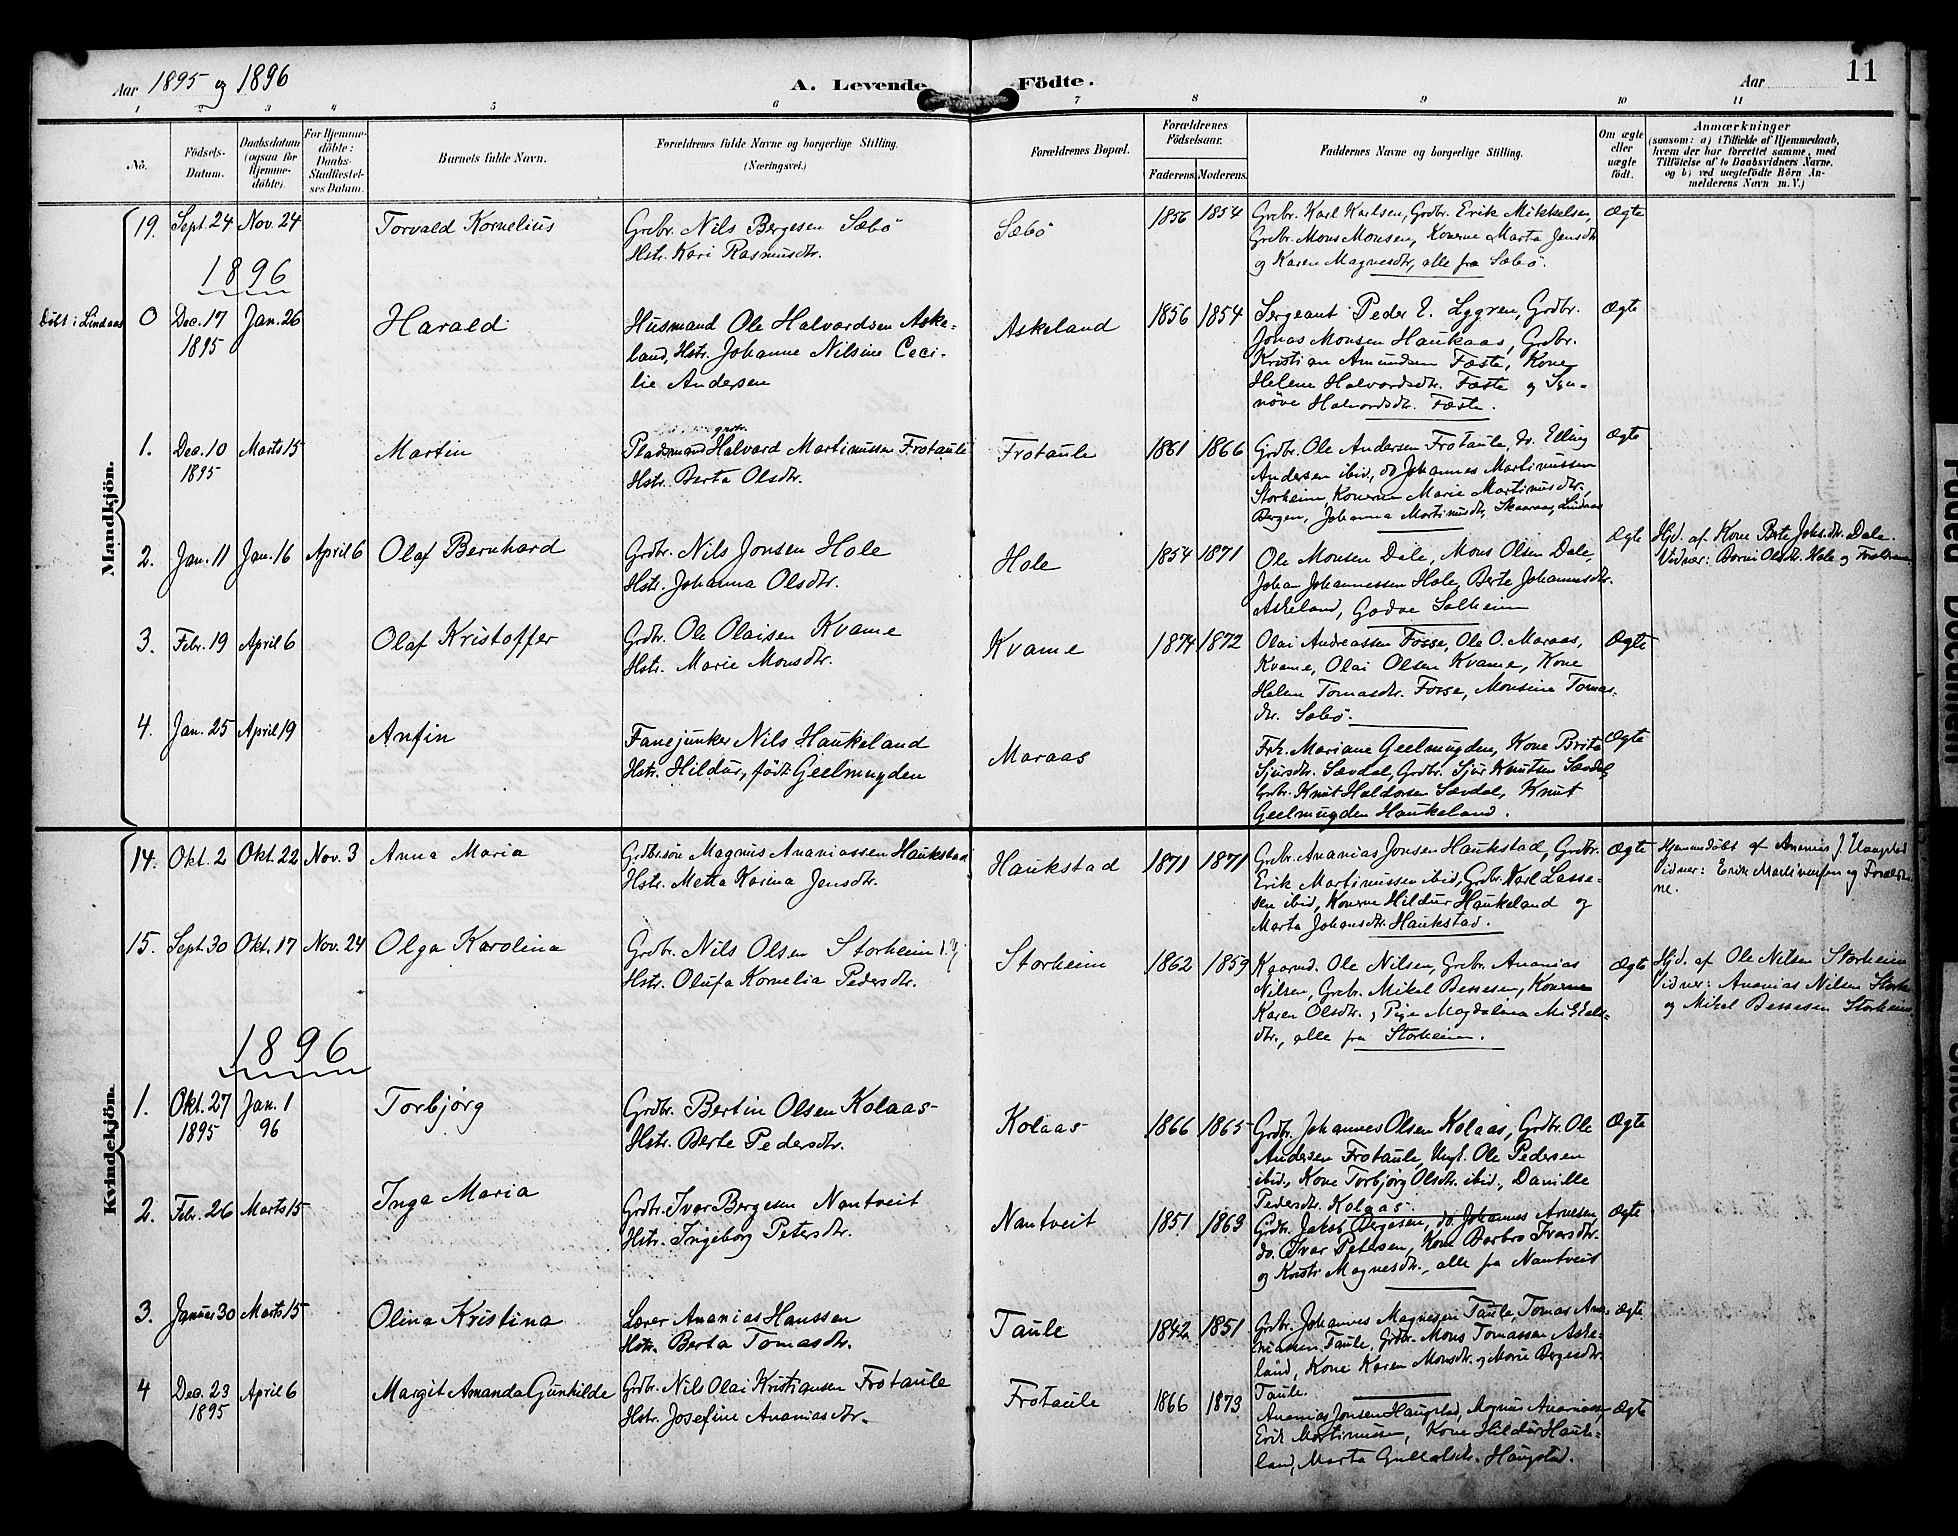 Aar 1895 og 1896
A. Levende Födte.
Aar
11
1 2 3 4 5 6 7 8 9 10 11
Nö.
Födsels-Datum.
Daabsdatum (ogsaa for Hjemmedöbte).
For Hjemmedöbte: Daabs-Stadfæstelses Datum.
Barnets fulde Navn.
Forældrenes fulde Navne og borgerlige Stilling. (Næringsvei.)
Forældrenes Bopæl.
Forældrenes Födselsaar.
Faderens. Moderens.
Faddernes Navne og borgerlige Stilling.
Om ægte eller uægte födt.
Anmærkninger
(saasom: a) i Tilfælde af Hjemmedaab, hvem der har forrettet samme, med Tilföielse af to Daabsvidners Navne, og b) ved uægtefödte Börn Anmelderens Navn m. V.)
Mandkjön.
19. Sept. 24 Nov. 24 Torvald Kornelius
Grdbr. Nils Bergesen Sæbö
Hstr. Kari Rasmusdtr.
Sæbö 1856 1854
Grdbr. Karl Karlsen, Grdbr. Erik Mikkelsen,
Grdbr. Mons Monsen, Konerne Marta Jensdtr
og Karen Magnesdtr, alle fra Sæbö.
Ægte
1896
Döbt i Lindaas
0 Dec. 17 1895 Jan. 26 Harald
Husmand Ole Halvardsen Aske-
land, Hstr. Johanne Nilsine Ceci-
lie Andersen
Askeland 1856 1854
Sergeant Peder E. Lygren, Grdbr.
Jonas Monsen Haukaas, Grdbr.
Kristian Amundsen Fæste, Kone
Helene Halvordsdtr. Fæste og Syn-
növe Halvordsdtr. Fæste.
Ægte
1. Dec. 10 1895 Marts 15 Martin
Pladsmand Halvard Martinussen Frotaule
Hstr. Berta Olsdtr.
Frotaule 1861 1866
Grdbr. Ole Andersen Frotaule, do. Elling
Andersen ibid, do Johannes Martinussen
Storheim, Konerne Marie Martinusdtr,
Bergen, Johanna Martinusdtr, Skaaraas, Lindaas
Ægte
2. Jan. 11 Jan. 16 April 6 Olaf Bernhard
Grdbr. Nils Jonsen Hole
Hstr. Johanna Olsdtr.
Hole 1854 1871
Ole Monsen Dale, Mons Olsen Dale,
Johan Johannessen Hole, Berte Johannesdtr.
Askeland, Gödve Solheim
Ægte
Hjd. af Kone Berte Johs.dtr. Dale.
Vidner: Olsdtr. Hole og
3. Febr. 19 April 6 Olaf Kristoffer
Grdbr. Ole Olaisen Kvame
Hstr. Marie Monsdtr.
Kvame 1874 1872
Olai Andreassen Fosse, Ole O. Maraas,
Kvame, Olai Olsen Kvame, Kone
Helen Tomasdtr. Fosse, Monsine Tomas-
dtr. Sæbö.
Ægte
4. Jan. 25 April 19 Anfin
Fanejunker Nils Haukeland
Hstr. Hildur, födt Geelmuyden
Maraas
Frk. Mariane Geelmuyden, Kone Brita
Sjursdtr. Sævdal, Grdbr. Sjur Knutsen Sævdal,
Grdbr. Knut Haldorsen Sævdal, Knut
Geelmuyden Haukeland.
Ægte
Kvindekjön.
14. Okt. 2 Okt. 22 Nov. 3 Anna Maria
Grdbrsön Magnus Ananiassen Haukstad
Hstr. Metta Karina Jensdtr.
Haukstad 1871 1871
Grdbr. Ananias Jonsen Haukstad, Grdbr.
Erik Martinussen ibid, Grdbr. Karl Lasse-
sen ibid, Konerne Hildur Haukeland og
Marta Johansdtr. Haukstad.
Ægte
Hjemmedöbt af Ananias J. Haugstad
Vidner: Erik Martinussen og Foreldre-
ne.
15. Sept. 30 Okt. 17 Nov. 24 Olga Karolina
Grdbr. Nils Olsen Storheim
Hstr. Olufa Kornelia Pedersdtr.
Storheim 1862 1859
Kaarmd. Ole Nilsen, Grdbr. Ananias
Nilsen, Grdbr. Mikel Bessesen, Konerne
Karen Olsdtr., Pige Magdalena Mikkels-
dtr., alle fra Storheim.
Ægte
Hjd. af Ole Nilsen Storheim
Vidner: Ananias Nilsen Storh.
og Mikel Bessesen Storheim
1896
1. Okt. 27 1895 Jan. 1 96 Torbjørg
Grdbr. Bertin Olsen Kolaas
Hstr. Berte Pedersdtr.
Kolaas 1866 1865
Grdbr. Johannes Olsen Kolaas, Grdbr. Ole
Andersen Frotaule, Ungk. Ole Pedersen
ibid., Kone Torbjörg Olsdtr. ibid., Danille
Pedersdtr. Kolaas.
Ægte
2. Febr. 26 Marts 15 Inga Maria
Grdbr. Ivar Bergesen Nantveit
Hstr. Ingeborg Petersdtr.
Nantveit 1851 1863
Grdbr. Jakob Bergesen, do. Johannes Arnesen
do. Ivar Petersen, Kone Barbro Ivarsdtr.
og Kristi Magnesdtr., alle fra Nantveit
Ægte
3. Januar 30 Marts 15 Olina Kristina
Lærer Ananias Hanssen
Hstr. Berta Tomasdtr.
Taule 1842 1851
Grdbr. Johannes Magnesen Taule, Tomas Ana-
niassen Taule, Grdbr. Mons Tomassen Aske-
land, Kone Karen Monsdtr. og Marie Bergesdtr.
Taule.
Ægte
4 Dec. 23 1895 April 6 Margit Amanda Gunhilde
Grdbr. Nils Olai Kristiansen Frotaule
Hstr. Josefine Ananiasdtr.
Frotaule 1866 1873
Ananias Jonsen Haugstad, Magnus Ananiassen,
Erik Martinussen, Kone Hildur Hauke-
land, Marta Gullaksdtr. Haugstad.
Ægte